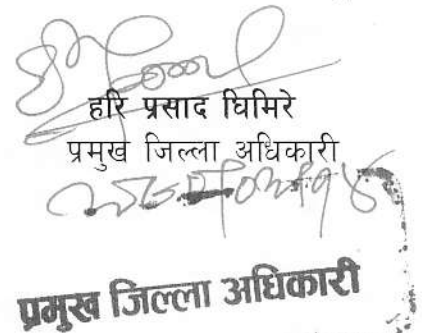 हरि प्रसाद घिमिरे
प्रमुख जिल्ला अधिकारी
प्रमुख जिल्ला अधिकारी